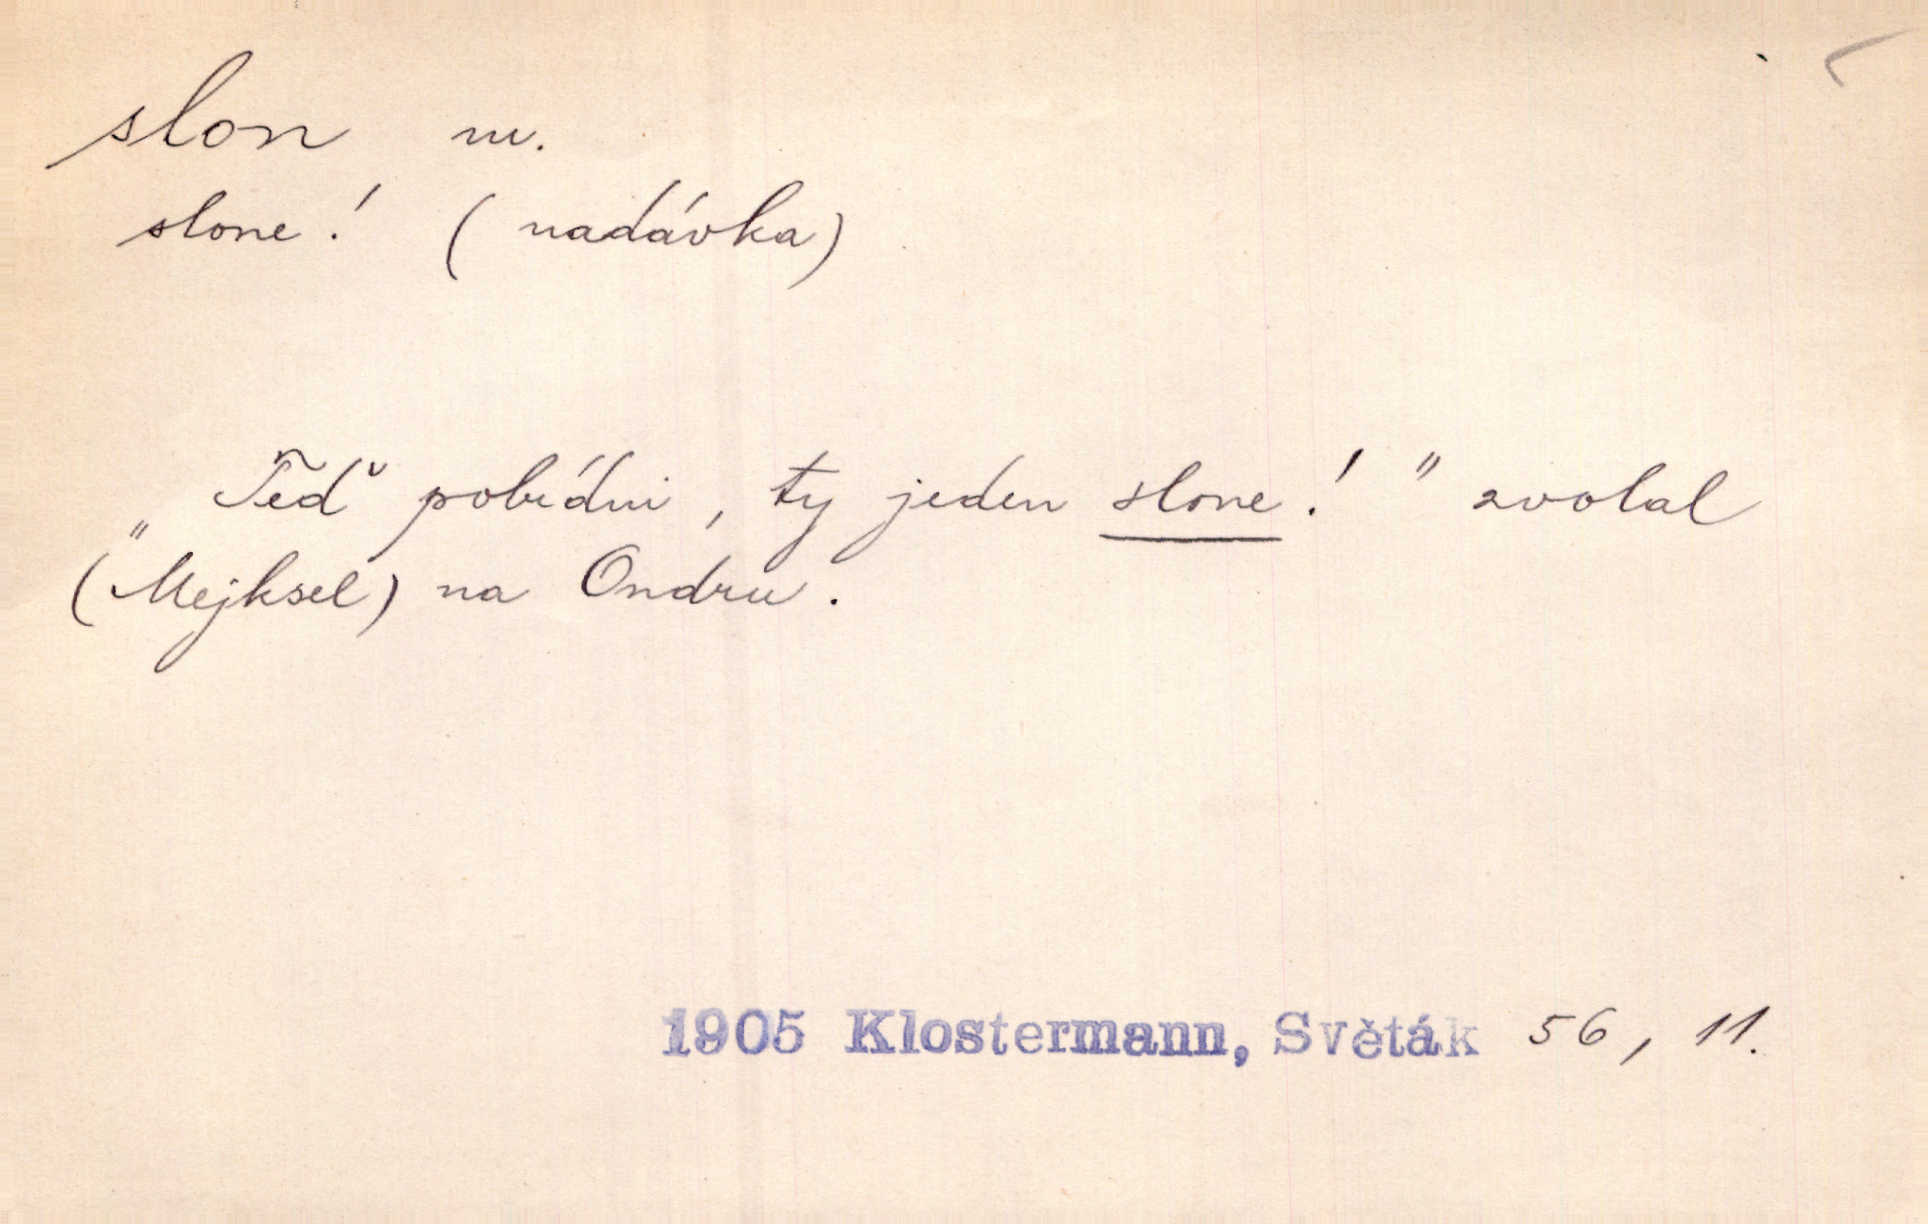 slon m.
slone! (nadávka)
„Teď pobídni, ty jeden slone!" zvolal
(Mejksel) na Ondru.
1905 Klostermann, Světák 56, 11.